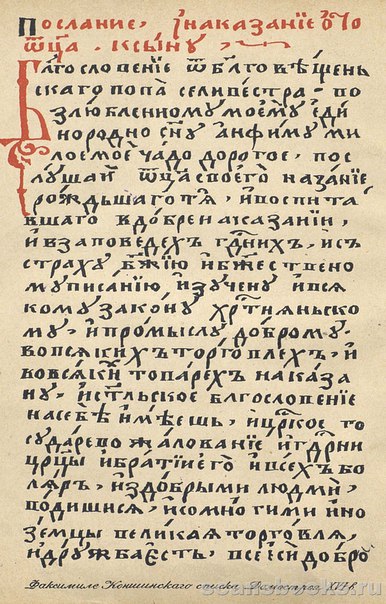 Послание, и наказание ѿ
ѿца. к сыну,
Блгословение ѿ блговещень
скаго попа селивестра. во
злюбленному моему еди
нородно сну анфиму ми
лое мое чадо дорогое, пос
лушай ѿца своего наказание
рождьшаго тя, и воспита
вшаго в добре наказании,
и в заповедехъ гднихъ, и съ
страху бжию и бжествено
му писанию, изучену и вся
кому закону хртияньско
му, и промыслу доброму.
во всякихъ торговлехъ, и
во всяких товарехъ наказа
ну, и стльское блгословение
на себѣ имѣешь, и цркое го
сударево жалование и гдрни
црцы и братии его и всехъ бо
ляръ, и з добрыми людми,
водишися, и со многими ино
земцы великая торговля,
и дружба есть, все еси добро
Факсимиле Коншинского списка Домостроя XVI в.